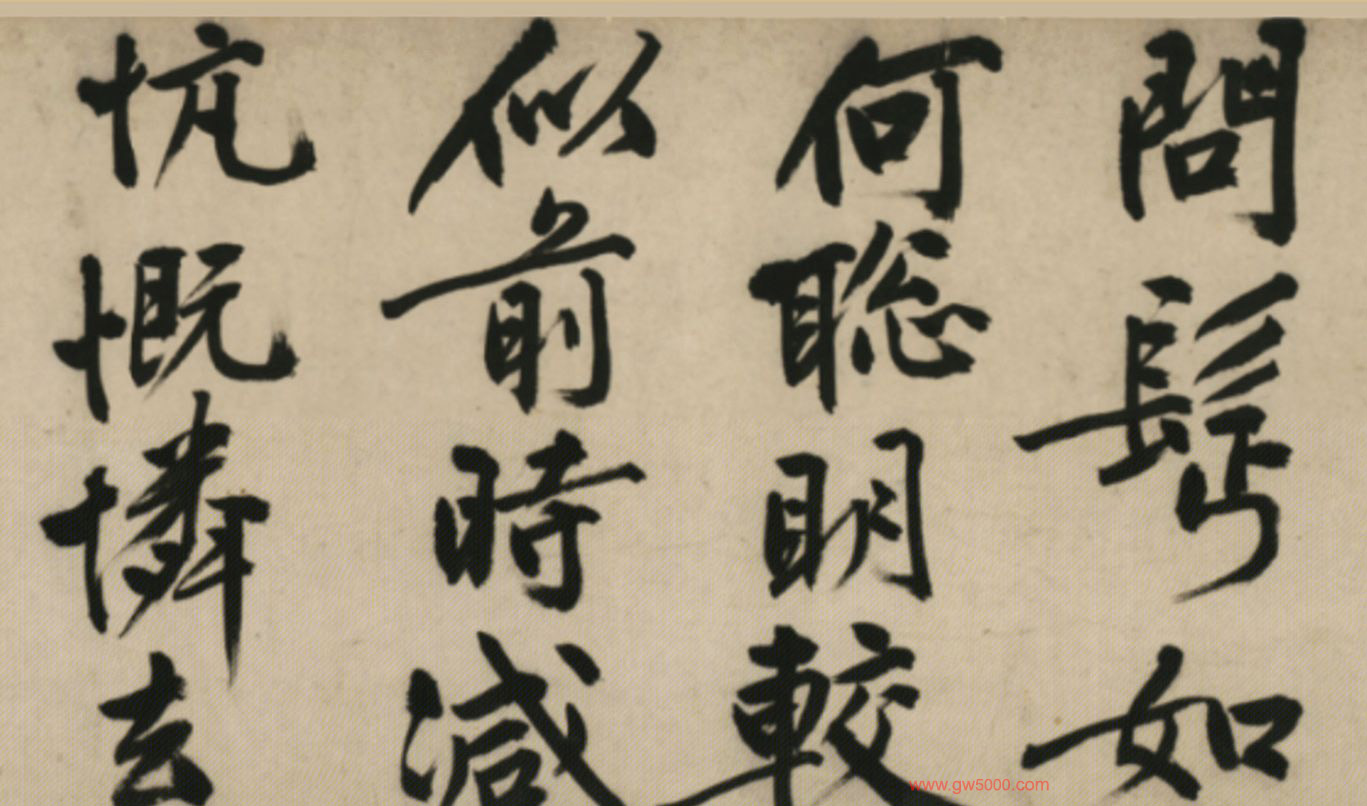 問如
何聡眀較
似前時減
忼慨憐
www.gw5000.com